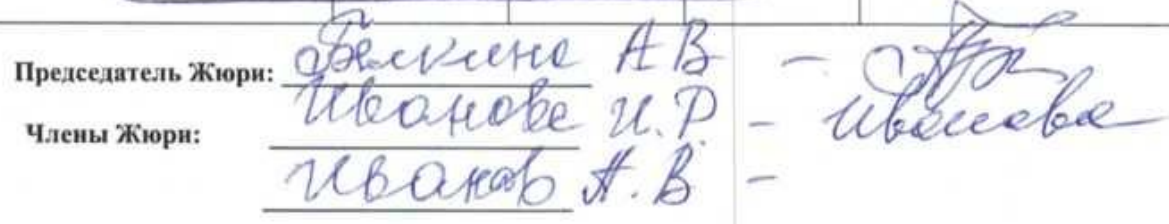 Председатель Жюри: Белкина А В -
Члены Жюри: Иванова И.Р. - Иванова
Иванов А.В -